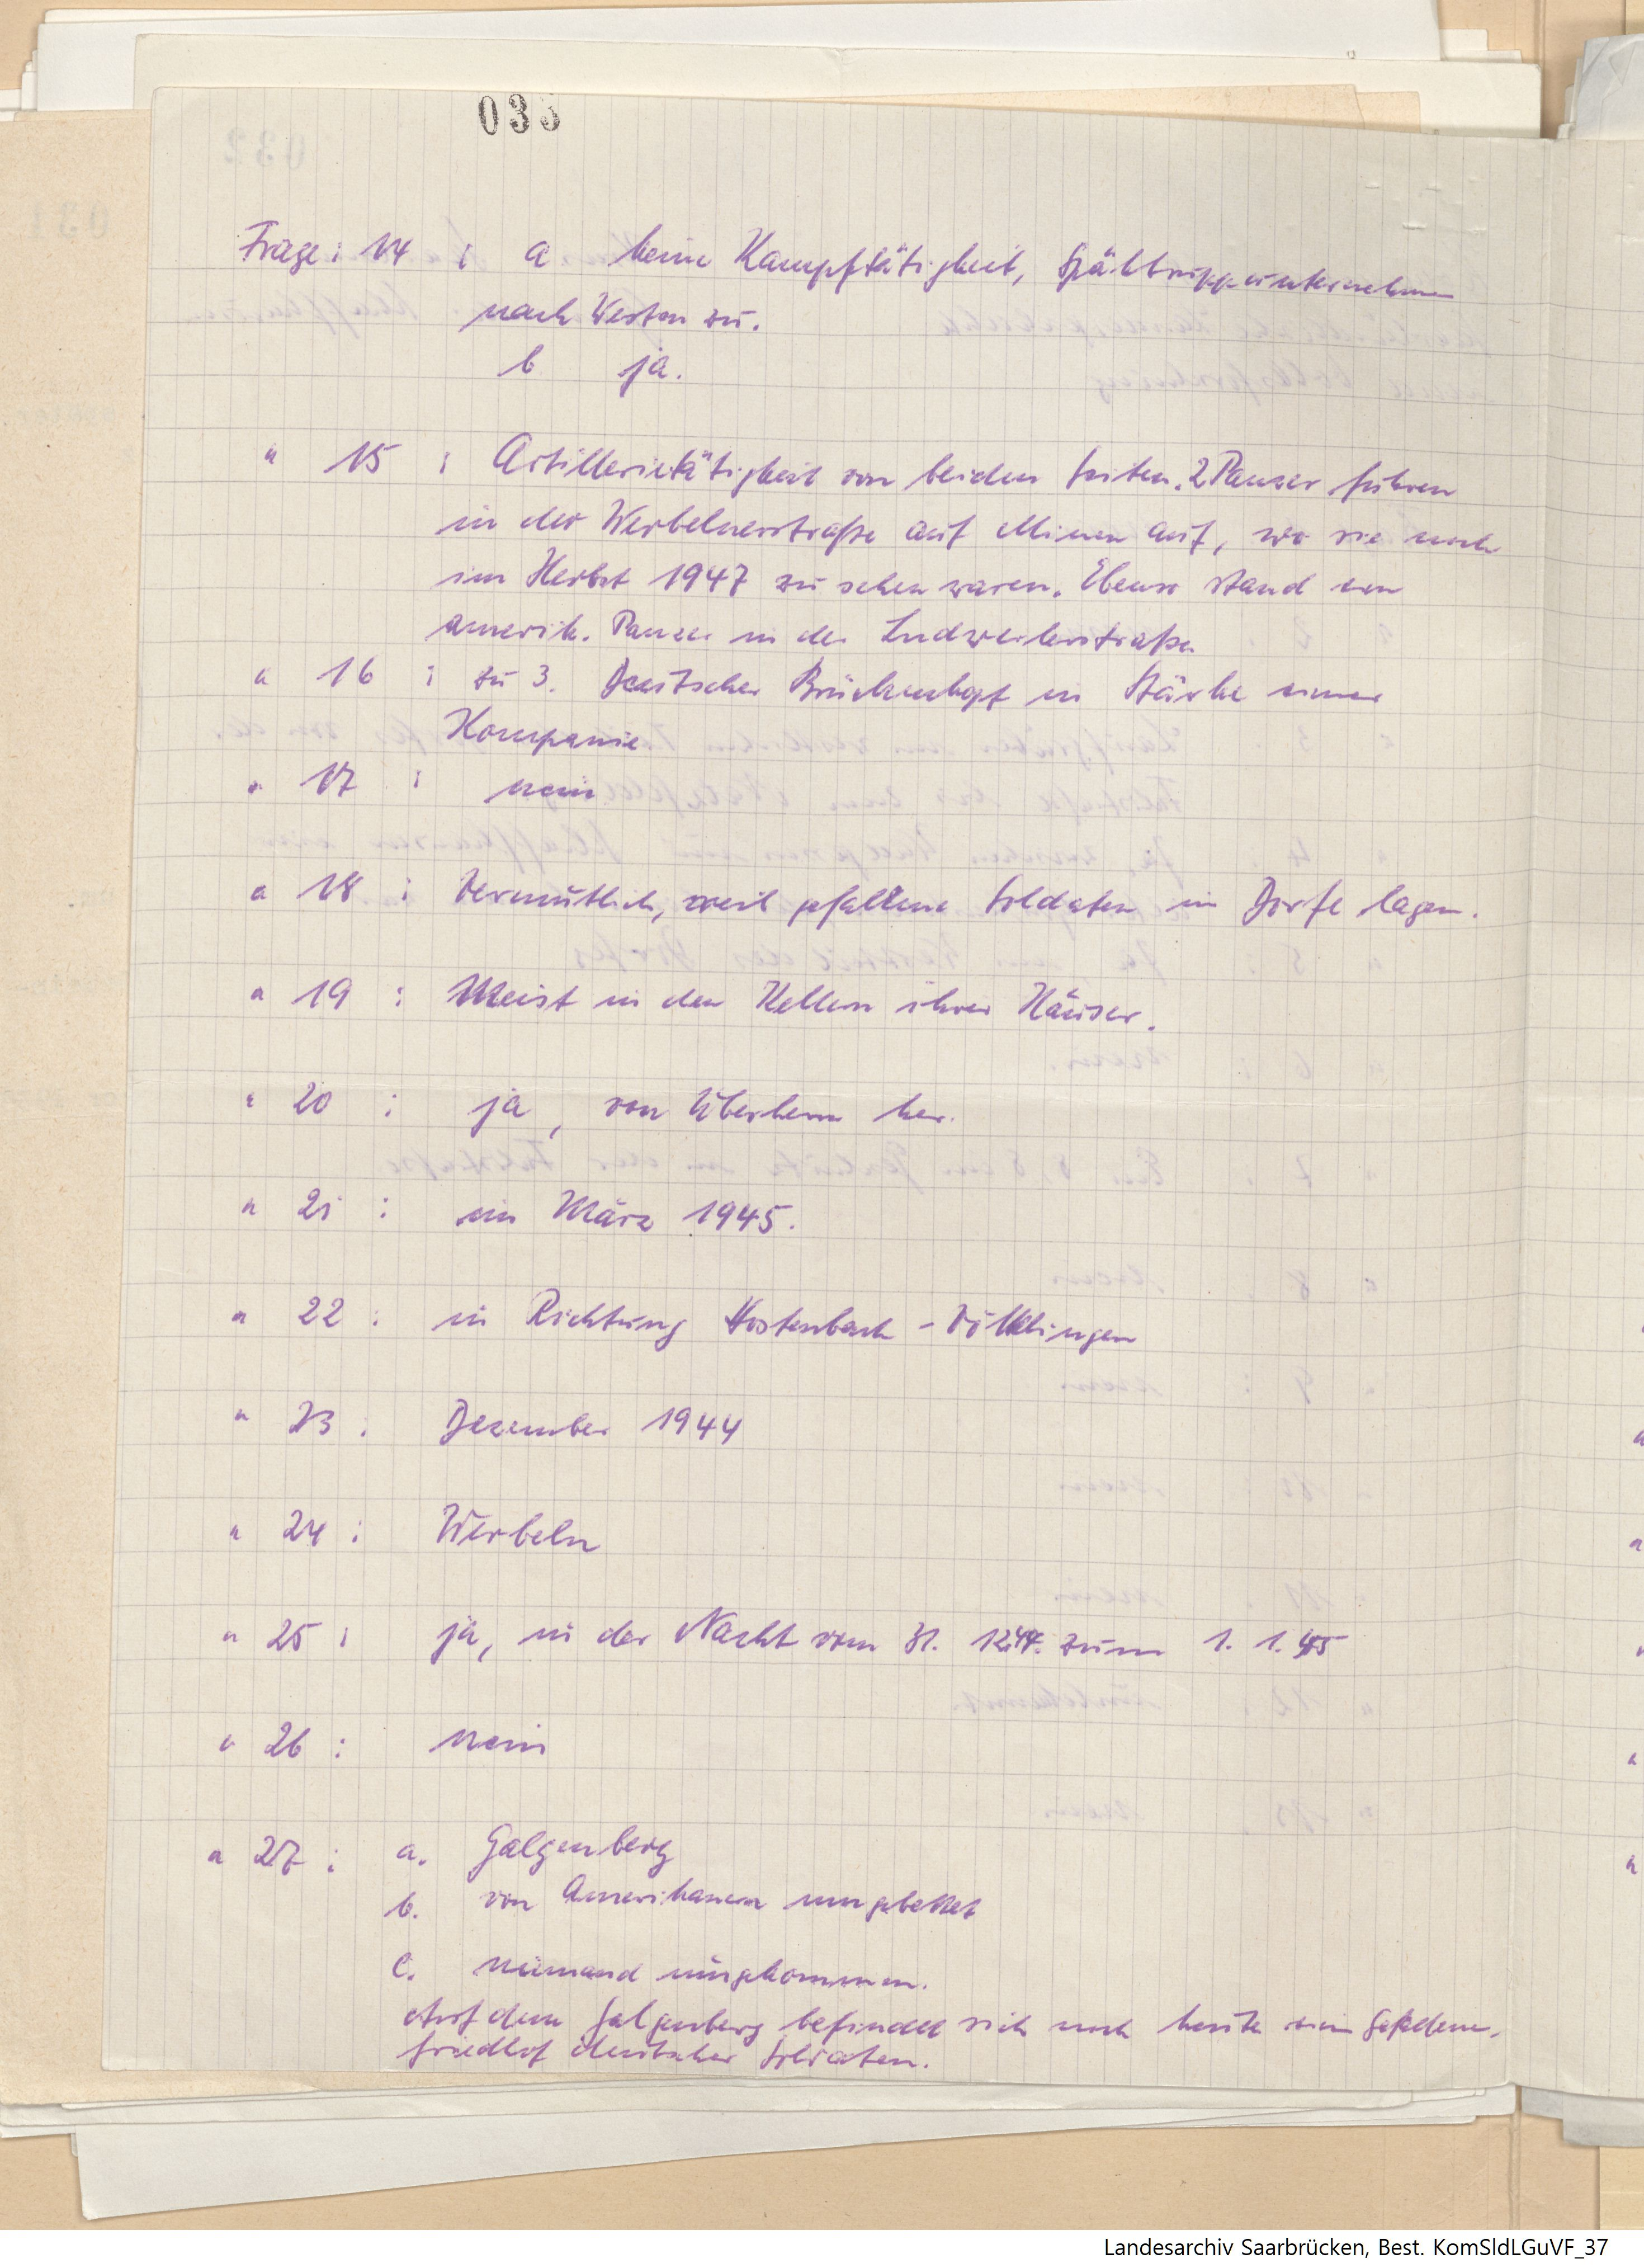 033
Frage: 14 : a keine Kampftätigkeit, Spähtruppunternehmen
nach Westen zu.
b ja.
" 15 : Artillerietätigkeit von beiden Seiten. 2 Panzer fuhren
in der Werbelnerstraße auf Minen auf, wo sie noch
im Herbst 1947 zu sehen waren. Ebenso stand ein
amerik. Panzer in der Ludweilerstraße
" 16 : zu 3. Deutscher Brückenkopf in Stärke einer
Kompanie
" 17 : nein
" 18 : Vermutlich, weil gefallene Soldaten im Dorfe lagen.
" 19 : Meist in den Kellern ihrer Häuser.
" 20 : ja, von Überherrn her.
" 21 : im März 1945.
" 22 : in Richtung Hostenbach - Völklingen
" 23 : Dezember 1944
" 24 : Werbeln
" 25 : ja, in der Nacht vom 31. 12.44. zum 1. 1. 45
" 26 : nein
" 27 : a. Galgenberg
b. von Amerikanern umgebettet
c. niemand umgekommen.
Auf dem Galgenberg befindet sich noch heute ein Gefallenen-
friedhof deutscher Soldaten.
Landesarchiv Saarbrücken, Best. KomSldLGuVF_37